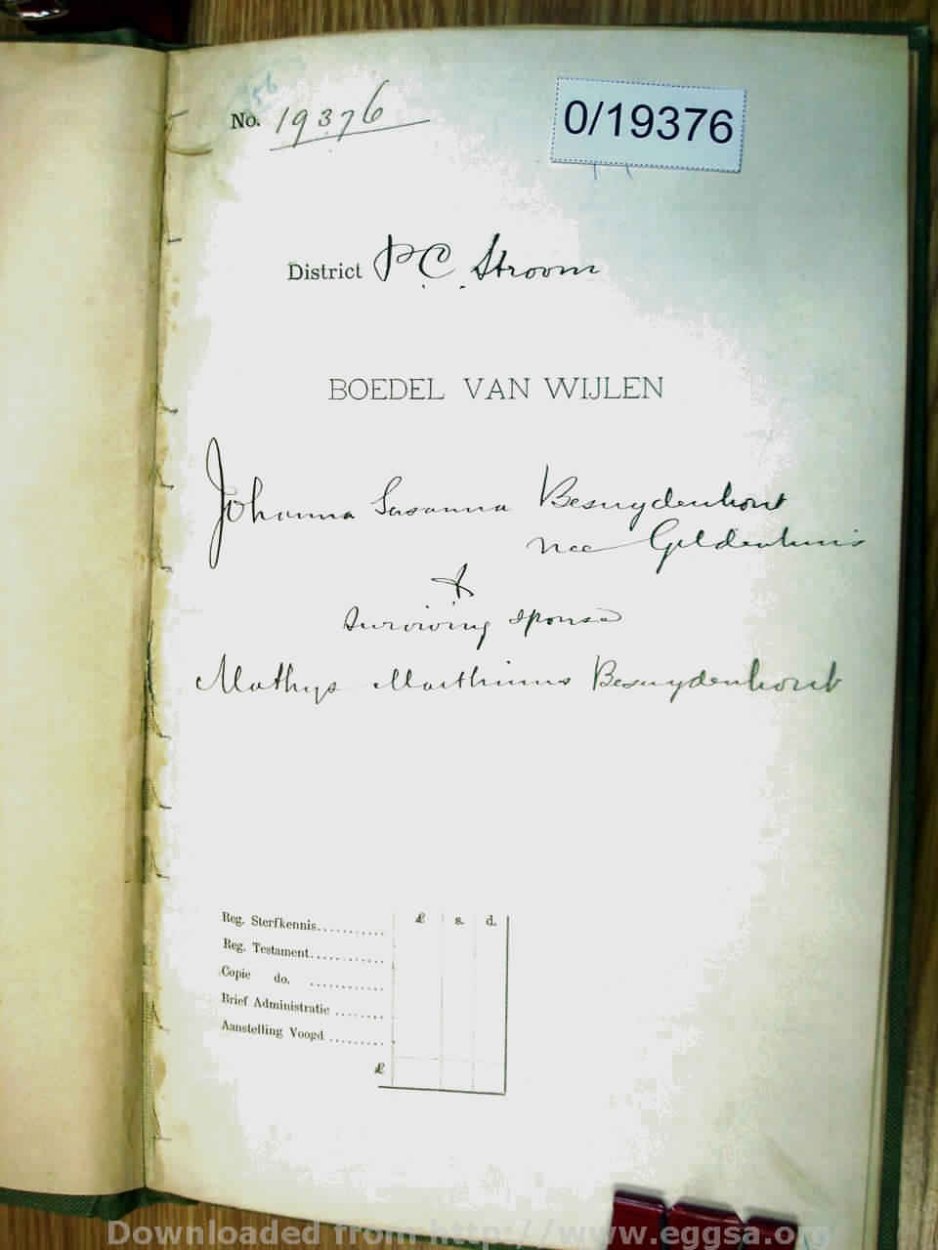 No. 19376
0/19376
District P.C. Stroom
BOEDEL VAN WIJLEN
Johanna Susanna Besuydenhout
nee Geldenhuis
&
surviving spouse
Mathys Marthinus Besuydenhout
£ s. d.
Reg. Sterfkennis...........
Reg. Testament............
Copie do. ............
Brief Administratie ........
Aanstelling Voogd .........
£
Downloaded from http://www.eggsa.org